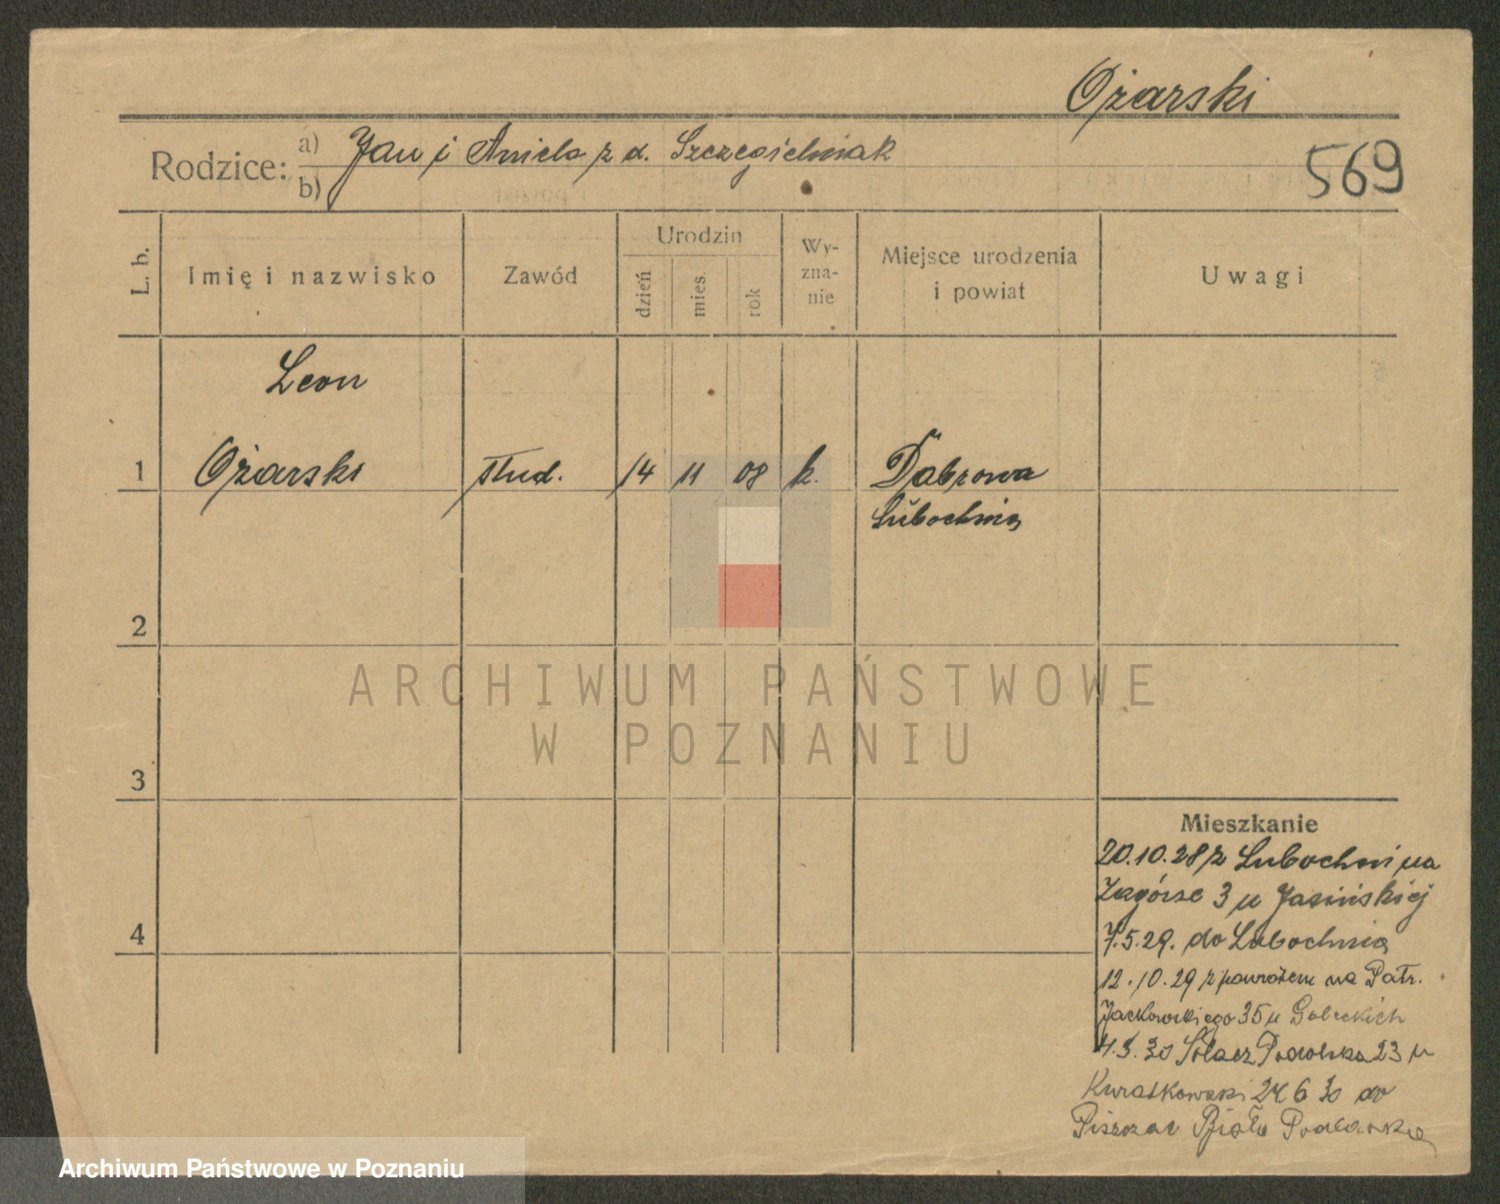 Ożarski
Rodzice: a) Jan i Aniela z d. Szczegielniak
b)
569
L. b.
Imię i nazwisko
Zawód
Urodzin
dzień
mies.
rok
Wy-
zna-
nie
Miejsce urodzenia
i powiat
Uwagi
Leon
1 Ożarski stud. 14 11 08 k. Dąbrowa
Lubochnia
2
ARCHIWUM PAŃSTWOWE
W POZNANIU
3
Mieszkanie
20.10.28 z Lubochni na
Zagórze 3 u Jasińskiej
4
7.5.29. do Lubochnia
12.10.29 z powrotem na Patr.
Jackowskiego 35 u
30 Sołacz Podolska 23 u
Kwiatkowski 24 6 30 do
Piszczac Biała Podlaska
Archiwum Państwowe w Poznaniu